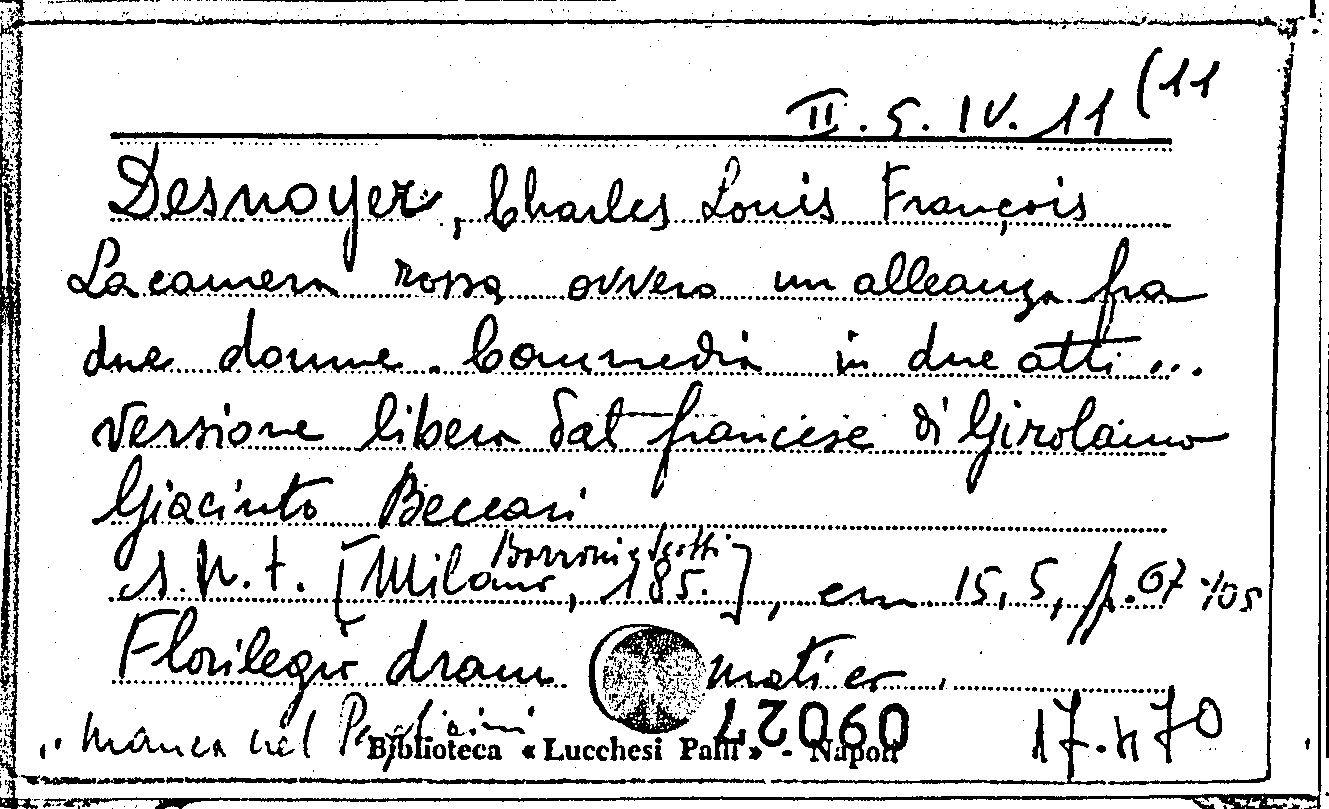 II. 5. IV. 11 (11
Desnoyer, Charles Louis François
La camera rossa ovvero un alleanza fra
due donne. Commedia in due atti ...
versione libera dal francese di Girolamo
Giacinto Beccari
s.n.t. [Milano, Borroni e Scotti, 185.], cm 15,5, p. 67 %05
Florilegio dram matico.
manca nel
09027
17.470
Biblioteca « Lucchesi Palli » - Napoli